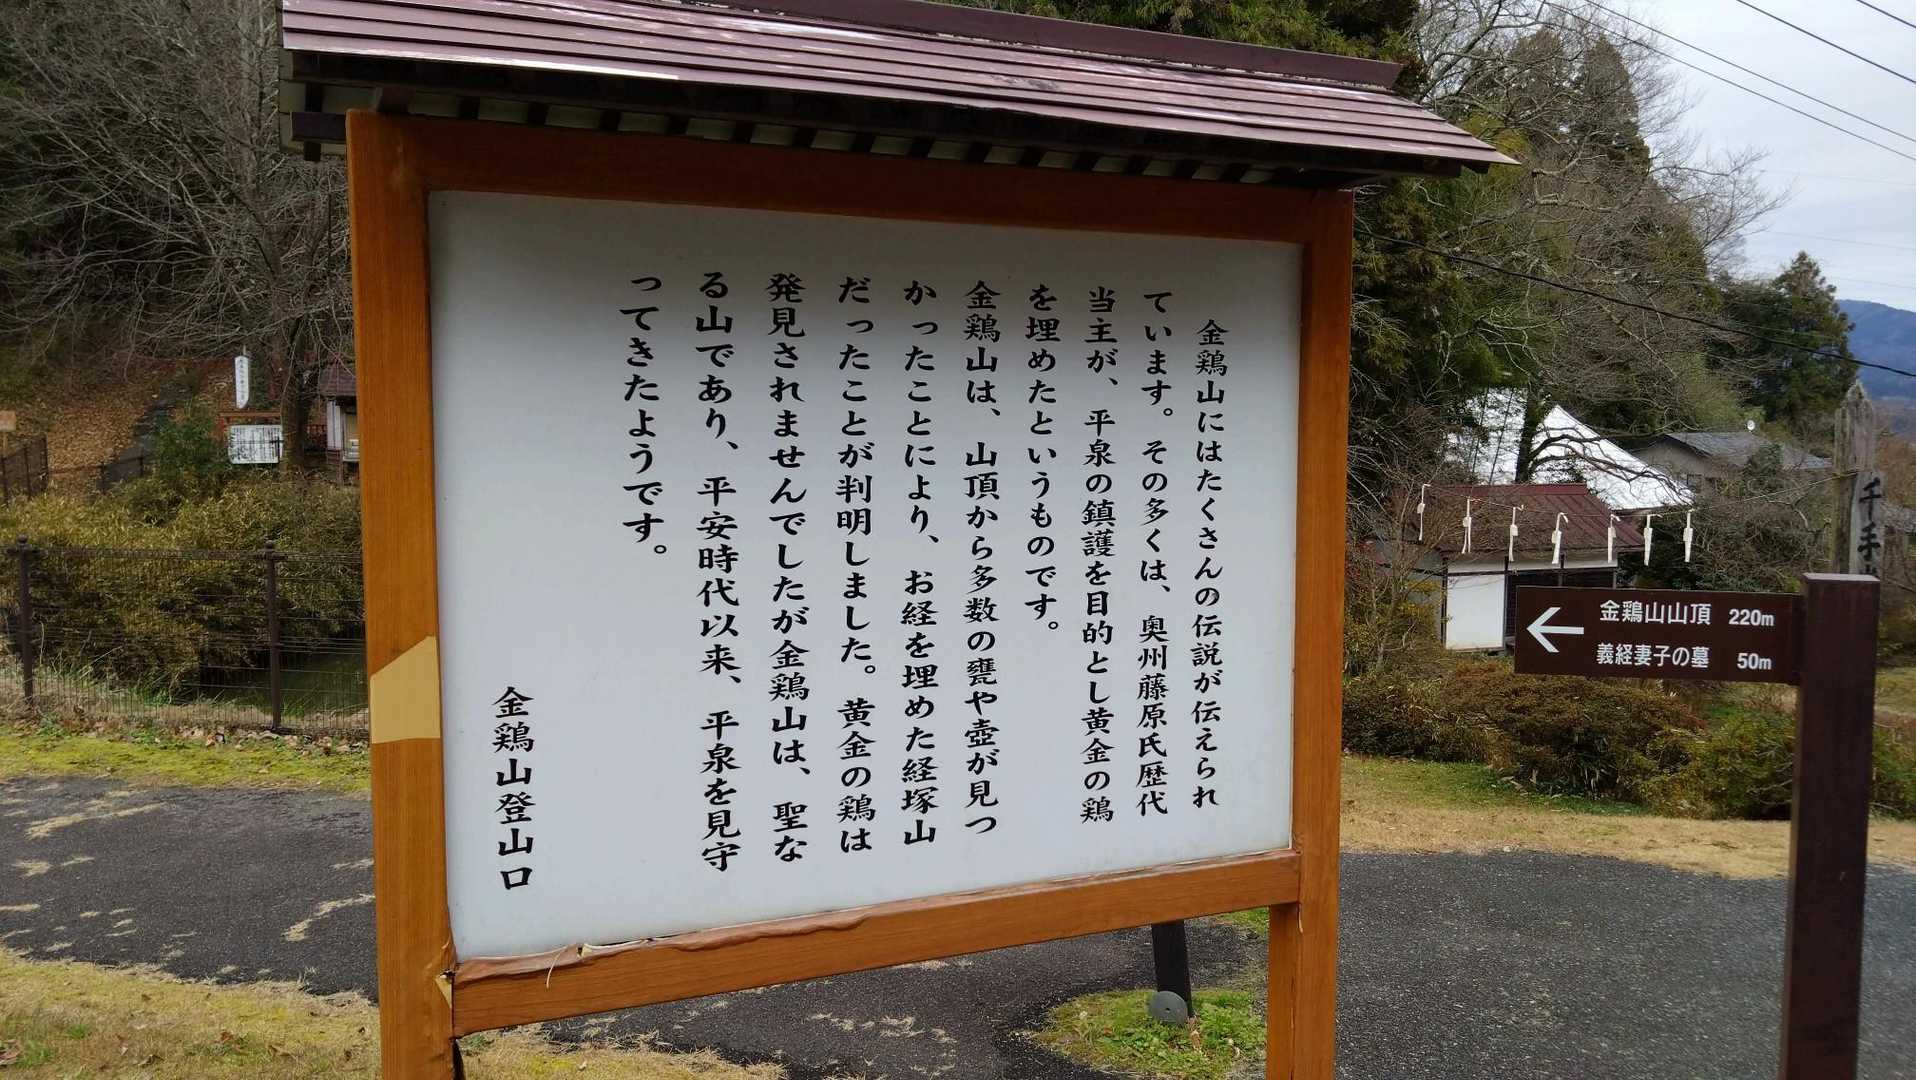 金鶏山にはたくさんの伝説が伝えられ
ています。その多くは、奥州藤原氏歴代
当主が、平泉の鎮護を目的とし黄金の鶏
を埋めたというものです。
金鶏山は、山頂から多数の甕や壺が見つ
かったことにより、お経を埋めた経塚山
だったことが判明しました。黄金の鶏は
発見されませんでしたが金鶏山は、聖な
る山であり、平安時代以来、平泉を見守
ってきたようです。
金鶏山登山口
金鶏山山頂 220m
義経妻子の墓 50m
千手